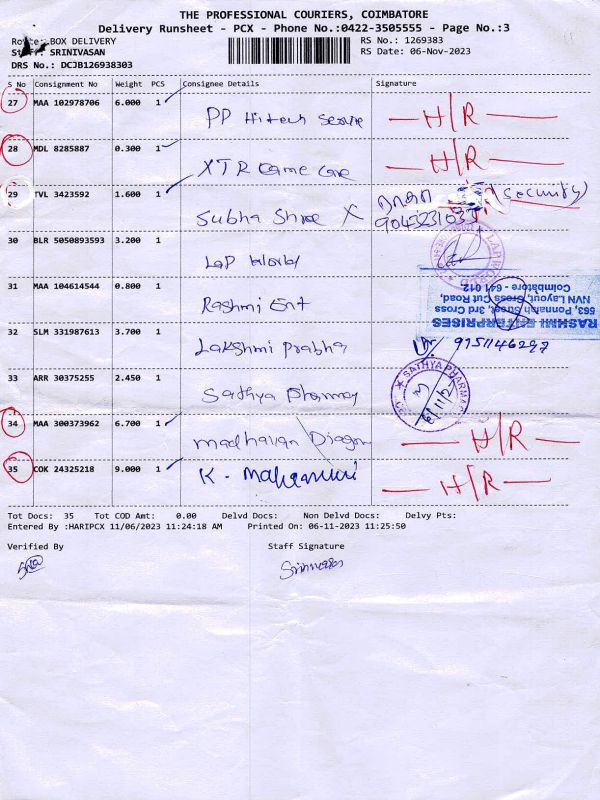 THE PROFESSIONAL COURIERS, COIMBATORE
Delivery Runsheet - PCX - Phone No.:0422-3505555 - Page No.:3
Route: BOX DELIVERY
RS No.: 1269383
Staff: SRINIVASAN
RS Date: 06-Nov-2023
DRS No.: DCJB126938303
S No Consignment No Weight PCS Consignee Details Signature
27 MAA 102978706 6.000 1
PP Hitech Service H/R
28 MDL 8285887 0.300 1
XTR Game Care H/R
29 TVL 3423592 1.600 1
(Security)
Subha Shree X
30 BLR 5050893593 3.200 1
Lap World
31 MAA 104614544 0.800 1
Rashmi Ent
RASHMI ENTERPRISES
563, Ponnaiah Street, 3rd Cross
NVN Layout, Cross Cut Road,
Coimbatore - 641 012
32 SLM 331987613 3.700 1
Lakshmi Prabha 9751146297
33 ARR 30375255 2.450 1
Sathya Pharmacy
SATHYA PHARMACY
34 MAA 300373962 6.700 1
Madhavan Diagn H/R
35 COK 24325218 9.000 1
K. H/R
Tot Docs: 35 Tot COD Amt: 0.00 Delvd Docs: Non Delvd Docs: Delvy Pts:
Entered By :HARIPCX 11/06/2023 11:24:18 AM Printed On: 06-11-2023 11:25:50
Verified By Staff Signature
Srinivasan